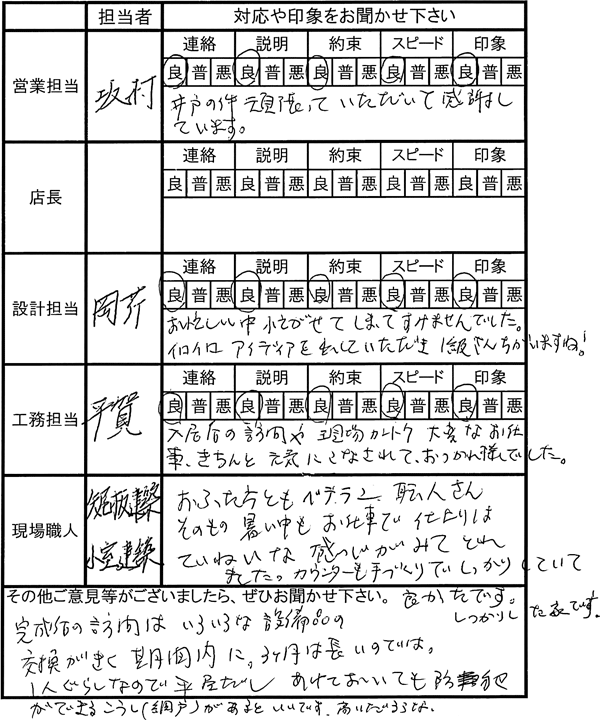 担当者 対応や印象をお聞かせ下さい
営業担当 坂村
連絡 説明 約束 スピード 印象
良 普 悪 良 普 悪 良 普 悪 良 普 悪 良 普 悪
井戸の件 頑張って いただいて 感謝し
ています。
店長
連絡 説明 約束 スピード 印象
良 普 悪 良 普 悪 良 普 悪 良 普 悪 良 普 悪
設計担当 岡芹
連絡 説明 約束 スピード 印象
良 普 悪 良 普 悪 良 普 悪 良 普 悪 良 普 悪
お忙しい中 いそがせて しまってすみませんでした。
イロイロ アイディアを していただき 1級さんちがいますね!
工務担当 平賀
連絡 説明 約束 スピード 印象
良 普 悪 良 普 悪 良 普 悪 良 普 悪 良 普 悪
入居后の訪問や 現場カントク 大変なお仕
事、きちんと元気にこなされて、おつかれ様でした。
現場職人 建築 小室建築
おふた方とも ベテラン 職人さん
そのもの 暑い中も お仕事で 仕上りは
ていねいな 感じがみてとれ
ました。カウンターも手づくりでしっかりしていて
その他ご意見等がございましたら、ぜひお聞かせ下さい。
良かったです。
しっかりした です。
完成后の訪問は いろいろな設備品の
交換がきく 期間内に。3ヶ月は長いのでは。
1人ぐらしなので平屋だし あけておいても 防犯
ができるこうし(網戸)があるといいです。